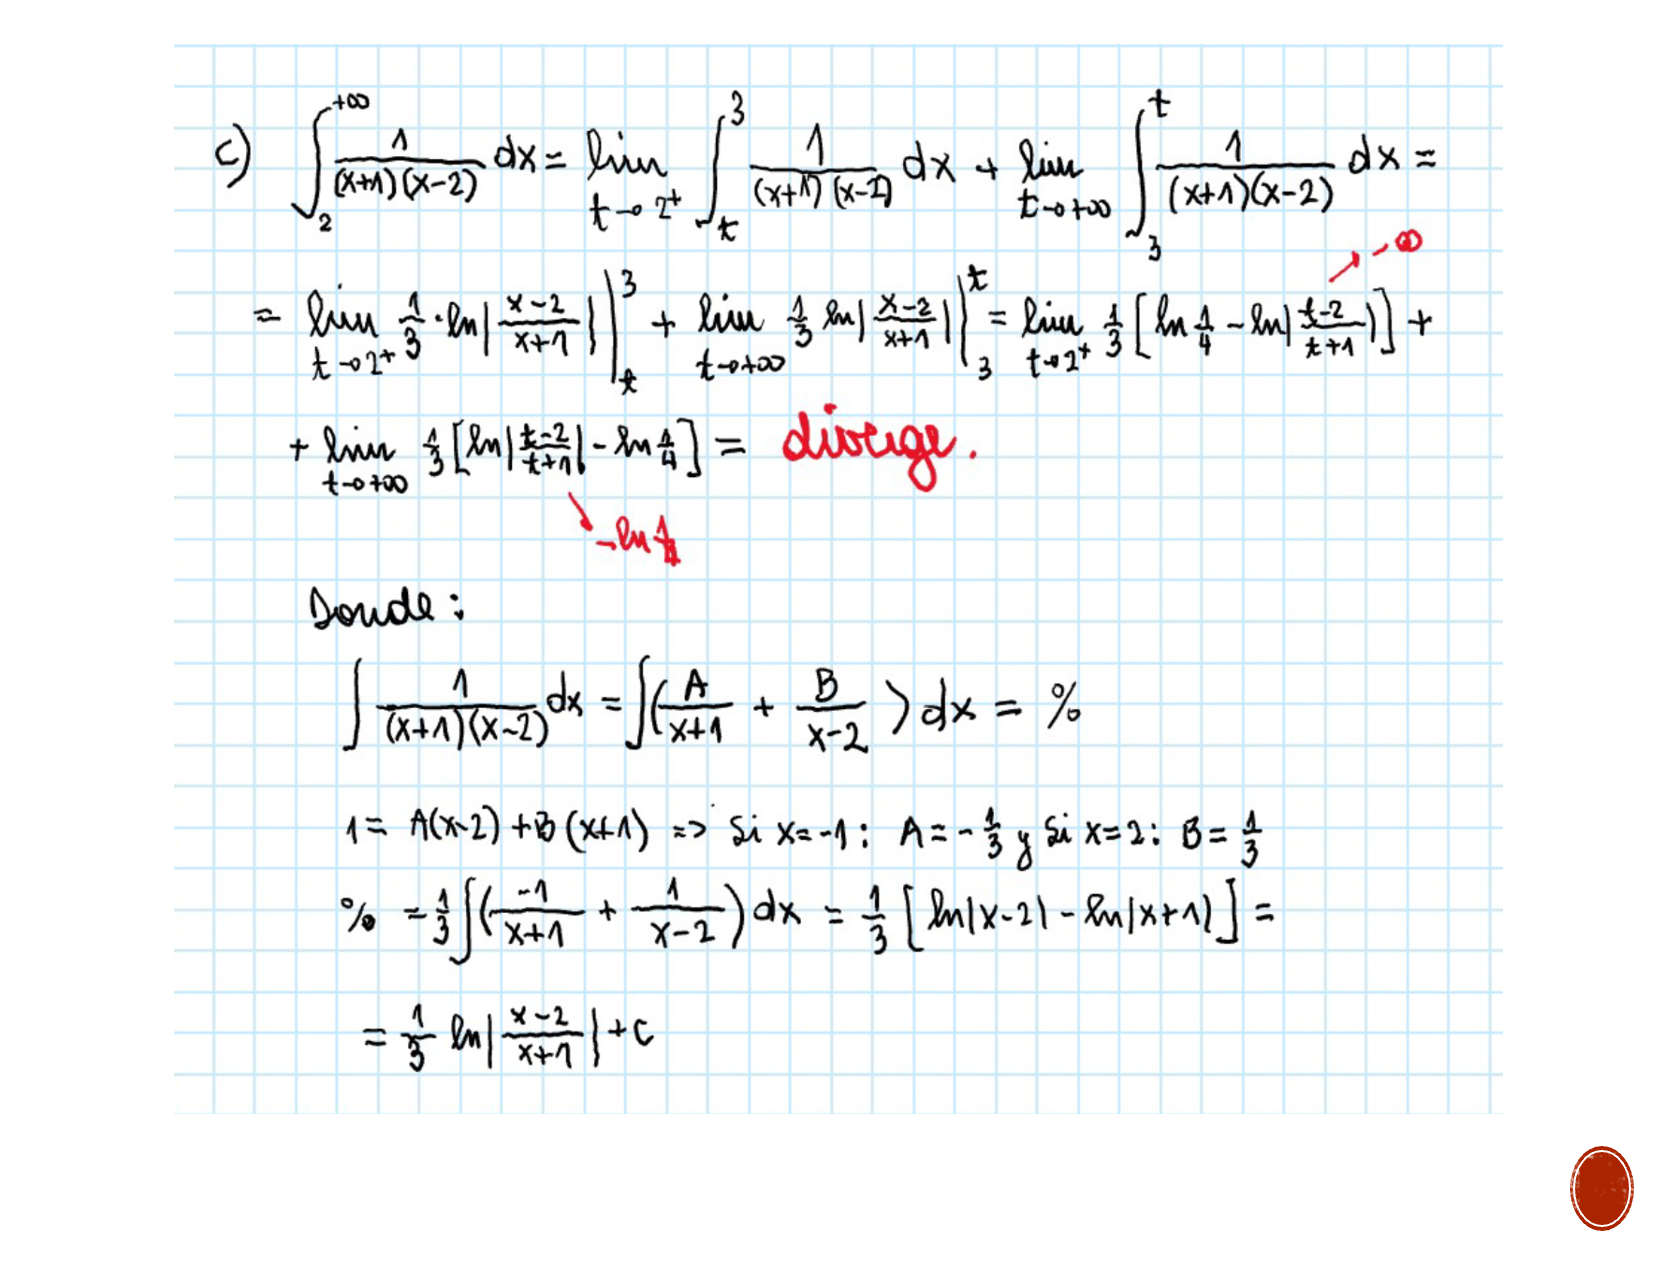 c) ∫_2^{+∞} 1/((x+1)(x-2)) dx = lim_{t→2⁺} ∫_t^3 1/((x+1)(x-2)) dx + lim_{t→+∞} ∫_3^t 1/((x+1)(x-2)) dx =
→ -∞
= lim_{t→2⁺} 1/3 · ln|(x-2)/(x+1)| |_t^3 + lim_{t→+∞} 1/3 ln|(x-2)/(x+1)| |_3^t = lim_{t→2⁺} 1/3 [ln 1/4 - ln|(t-2)/(t+1)|] +
+ lim_{t→+∞} 1/3 [ln|(t-2)/(t+1)| - ln 1/4] = diverge.
→ -ln 1/4
Donde:
∫ 1/((x+1)(x-2)) dx = ∫(A/(x+1) + B/(x-2)) dx = %
1 = A(x-2) + B(x+1) => Si x=-1: A = -1/3 y Si x=2: B = 1/3
% = 1/3 ∫(-1/(x+1) + 1/(x-2)) dx = 1/3 [ln|x-2| - ln|x+1|] =
= 1/3 ln|(x-2)/(x+1)| + C